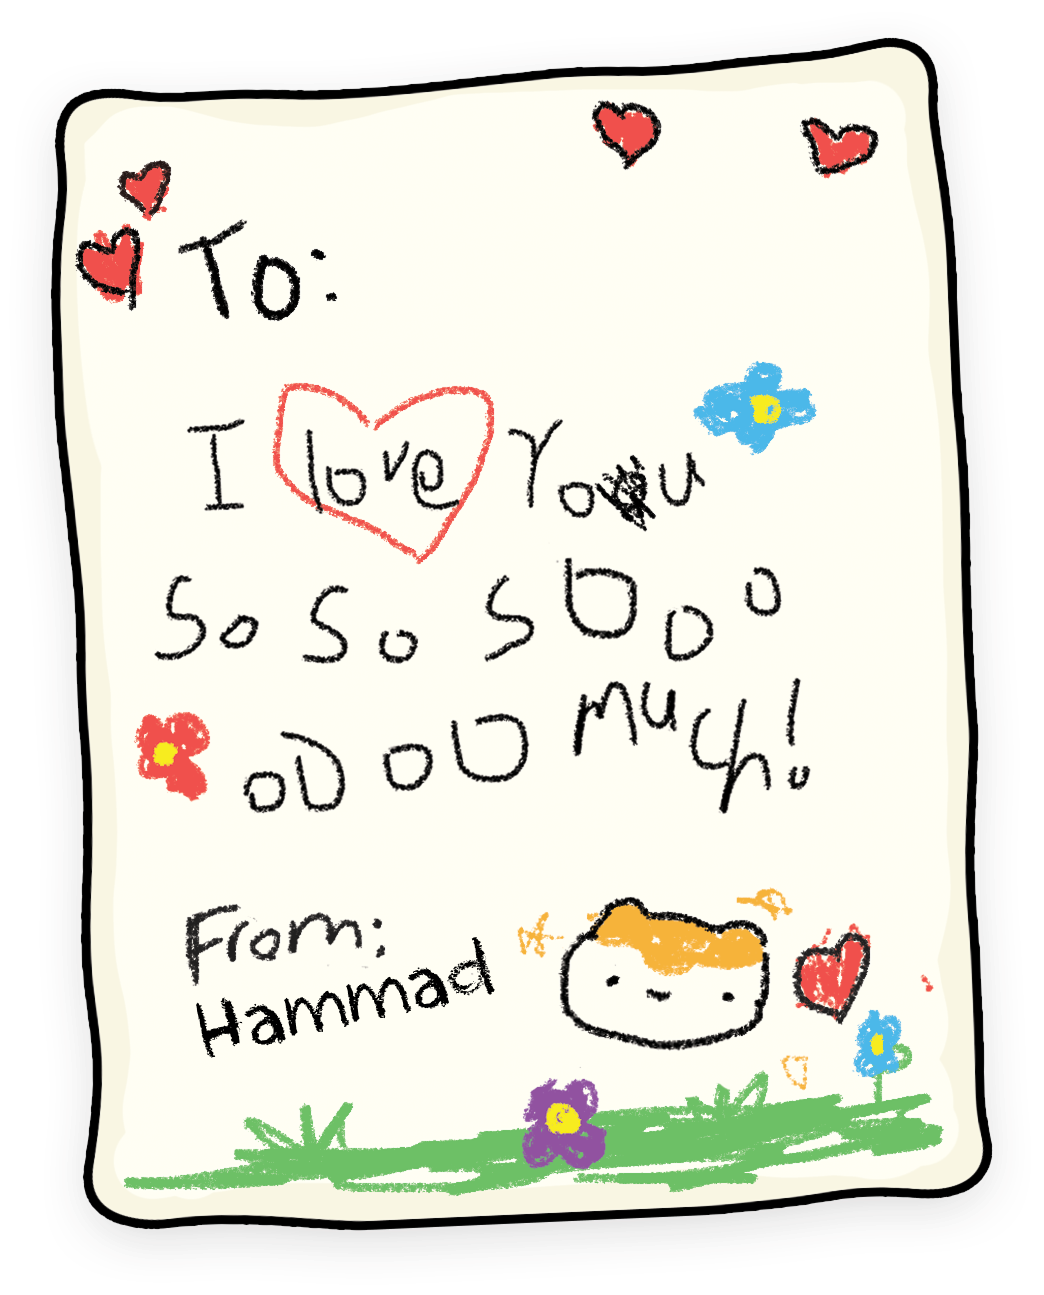 To:
I love You
So So SOOO
OOOO much!
From:
Hammad